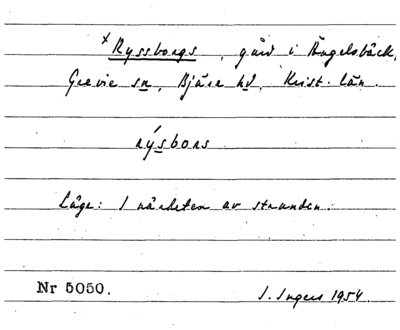 x Ryssborgs, gård i Ängelsbäck,
Grevie sn, Bjäre hd, Krist. län.
rýsbors
Läge: I närheten av stranden.
Nr 5050.
I. Ingers 1954.